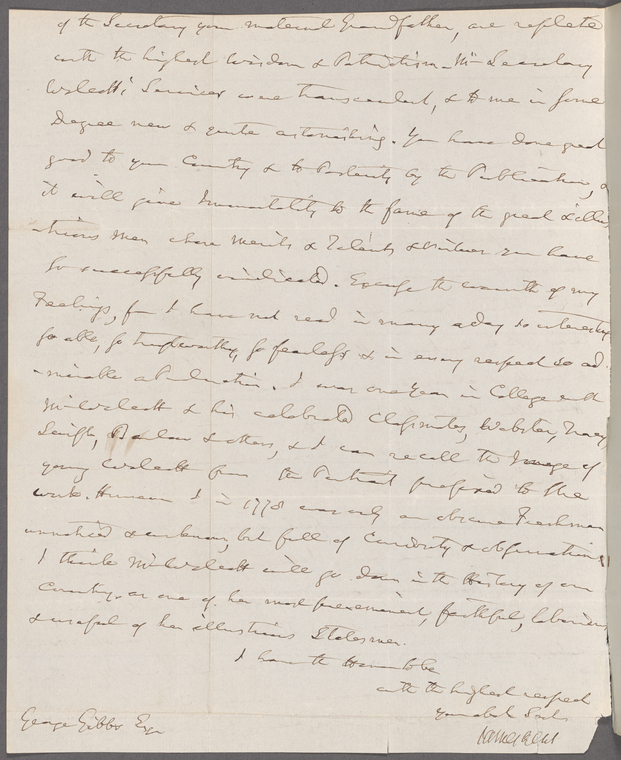 of the Secretary your maternal Grandfather, are replete
with the highest Wisdom & Patriotism. Mr Secretary
Wolcott's Services were transcendent, & to me in some
Degree new & quite astonishing. You have done great
good to your Country & to Posterity by the Publication, &
it will give Immortality to the fame of the great & illus
-trious men whose Merits & Talents & Virtues you have
so successfully vindicated. Excuse the warmth of my
Feelings, for I have not read in many a day so interesting
so able, so trustworthy, so fearless & in every respect so ad-
-mirable a Publication. I was one Year in College with
Mr Wolcott & his celebrated Classmates, Webster, Tracy,
Swift, Barlow & others, & I can recall the Image of
young Wolcott from the Portrait prefixed to the
work. However I in 1778 was only an obscure Freshman
unnoticed & unknown, but full of Curiosity & observation
I think Mr Wolcott will go down in the History of our
Country, as one of her most preeminent, faithful, laborious
& useful of her illustrious Statesmen.
I have the Honor to be
with the highest respect
your obed Servt
George Gibbs Esqr